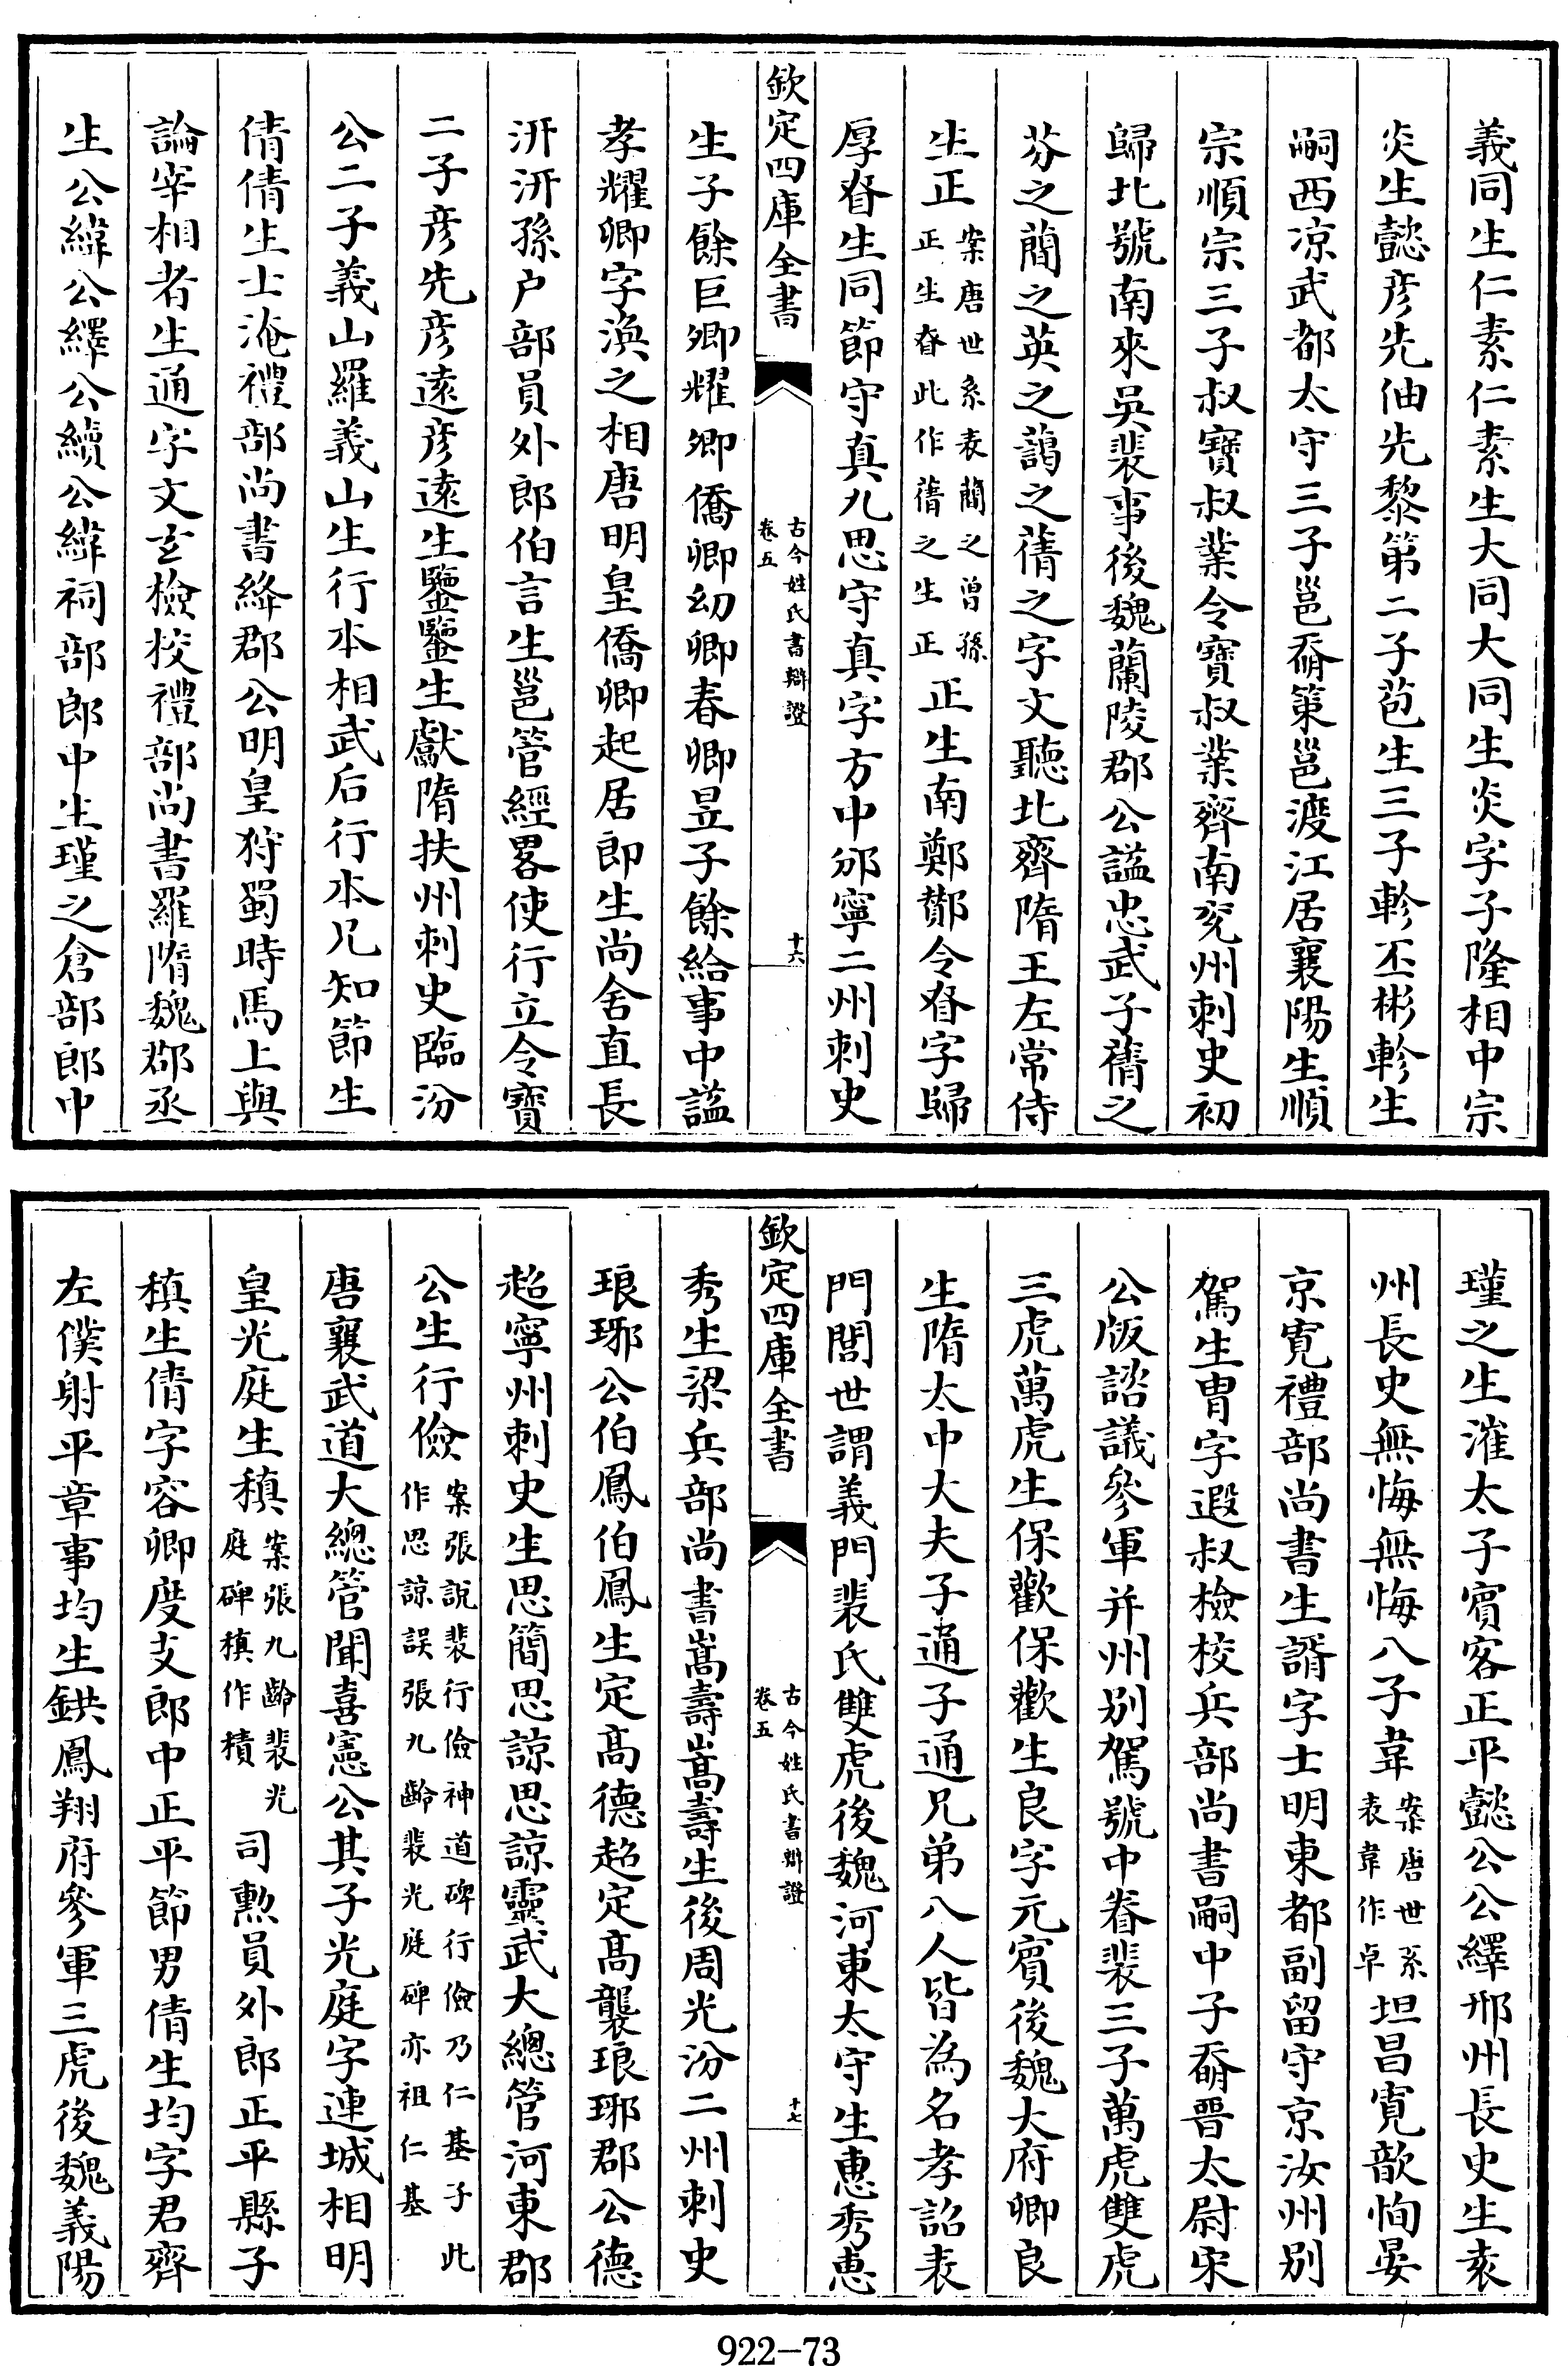 義同生仁素仁素生大同大同生炎字子隆相中宗
炎生懿彦先伷先黎第二子苞生三子軫丕彬軫生
嗣西凉武都太守三子邕奣策邕渡江居襄陽生順
宗順宗三子叔寶叔業令寶叔業齊南兖州刺史初
歸北號南來吳裴事後魏蘭陵郡公諡忠武子蒨之
芬之簡之英之藹之蒨之字文聽北齊隋王左常侍
生正案唐世系表簡之曽孫
正生眘此作蒨之生正正生南鄭鄼令眘字歸
厚眘生同節守真九思守真字方中邠寧二州刺史
欽定四庫全書
古今姓氏書辯證
卷五
十六
生子餘巨卿耀卿僑卿幼卿春卿昱子餘給事中諡
孝耀卿字渙之相唐明皇僑卿起居郎生尚舍直長
汧汧孫户部員外郎伯言生邕管經畧使行立令寶
二子彦先彦逺彦逺生鑒鑒生獻隋扶州刺史臨汾
公二子義山羅義山生行本相武后行本兄知節生
倩倩生士淹禮部尚書絳郡公明皇狩蜀時馬上與
論宰相者生通字文玄檢校禮部尚書羅隋魏郡丞
生公緯公繹公續公緯祠部郎中生瑾之倉部郎中
瑾之生漼太子賓客正平懿公公繹邢州長史生衮
州長史無悔無悔八子韋案唐世系
表韋作卓坦昌寛歆恂晏
京寛禮部尚書生諝字士明東都副留守京汝州别
駕生冑字遐叔檢校兵部尚書嗣中子奣晋太尉宋
公版諮議參軍并州别駕號中眷裴三子萬虎雙虎
三虎萬虎生保歡保歡生良字元賓後魏大府卿良
生隋太中大夫子通子通兄弟八人皆為名孝詔表
門閭世謂義門裴氏雙虎後魏河東太守生惠秀惠
欽定四庫全書
古今姓氏書辯證
卷五
十七
秀生梁兵部尚書嵩壽嵩壽生後周光汾二州刺史
琅琊公伯鳳伯鳳生定髙德超定髙襲琅琊郡公德
超寧州刺史生思簡思諒思諒靈武大總管河東郡
公生行儉案張說裴行儉神道碑行儉乃仁基子此
作思諒誤張九齡裴光庭碑亦祖仁基
唐襄武道大總管聞喜憲公其子光庭字連城相明
皇光庭生稹案張九齡裴光
庭碑稹作積司勲員外郎正平縣子
稹生倩字容卿度支郎中正平節男倩生均字君齊
左僕射平章事均生鉷鳳翔府參軍三虎後魏義陽
922-73